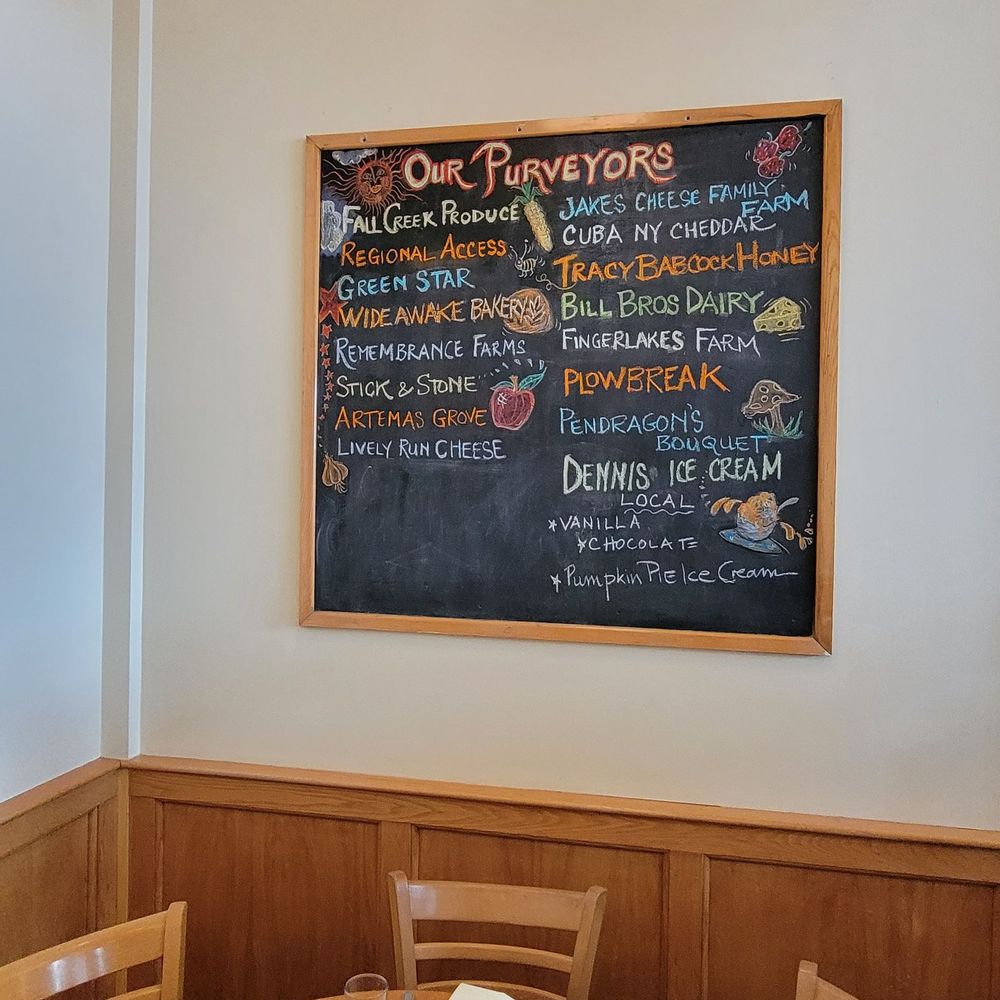 OUR PURVEYORS
FALL CREEK PRODUCE
REGIONAL ACCESS
GREEN STAR
WIDE AWAKE BAKERY
REMEMBRANCE FARMS
STICK & STONE
ARTEMAS GROVE
LIVELY RUN CHEESE
JAKES CHEESE FAMILY
FARM
CUBA NY CHEDDAR
TRACY BABCOCK HONEY
BILL BROS DAIRY
FINGERLAKES FARM
PLOWBREAK
PENDRAGON'S
BOUQUET
DENNIS ICE CREAM
LOCAL
*VANILLA
*CHOCOLATE
*Pumpkin Pie Ice Cream